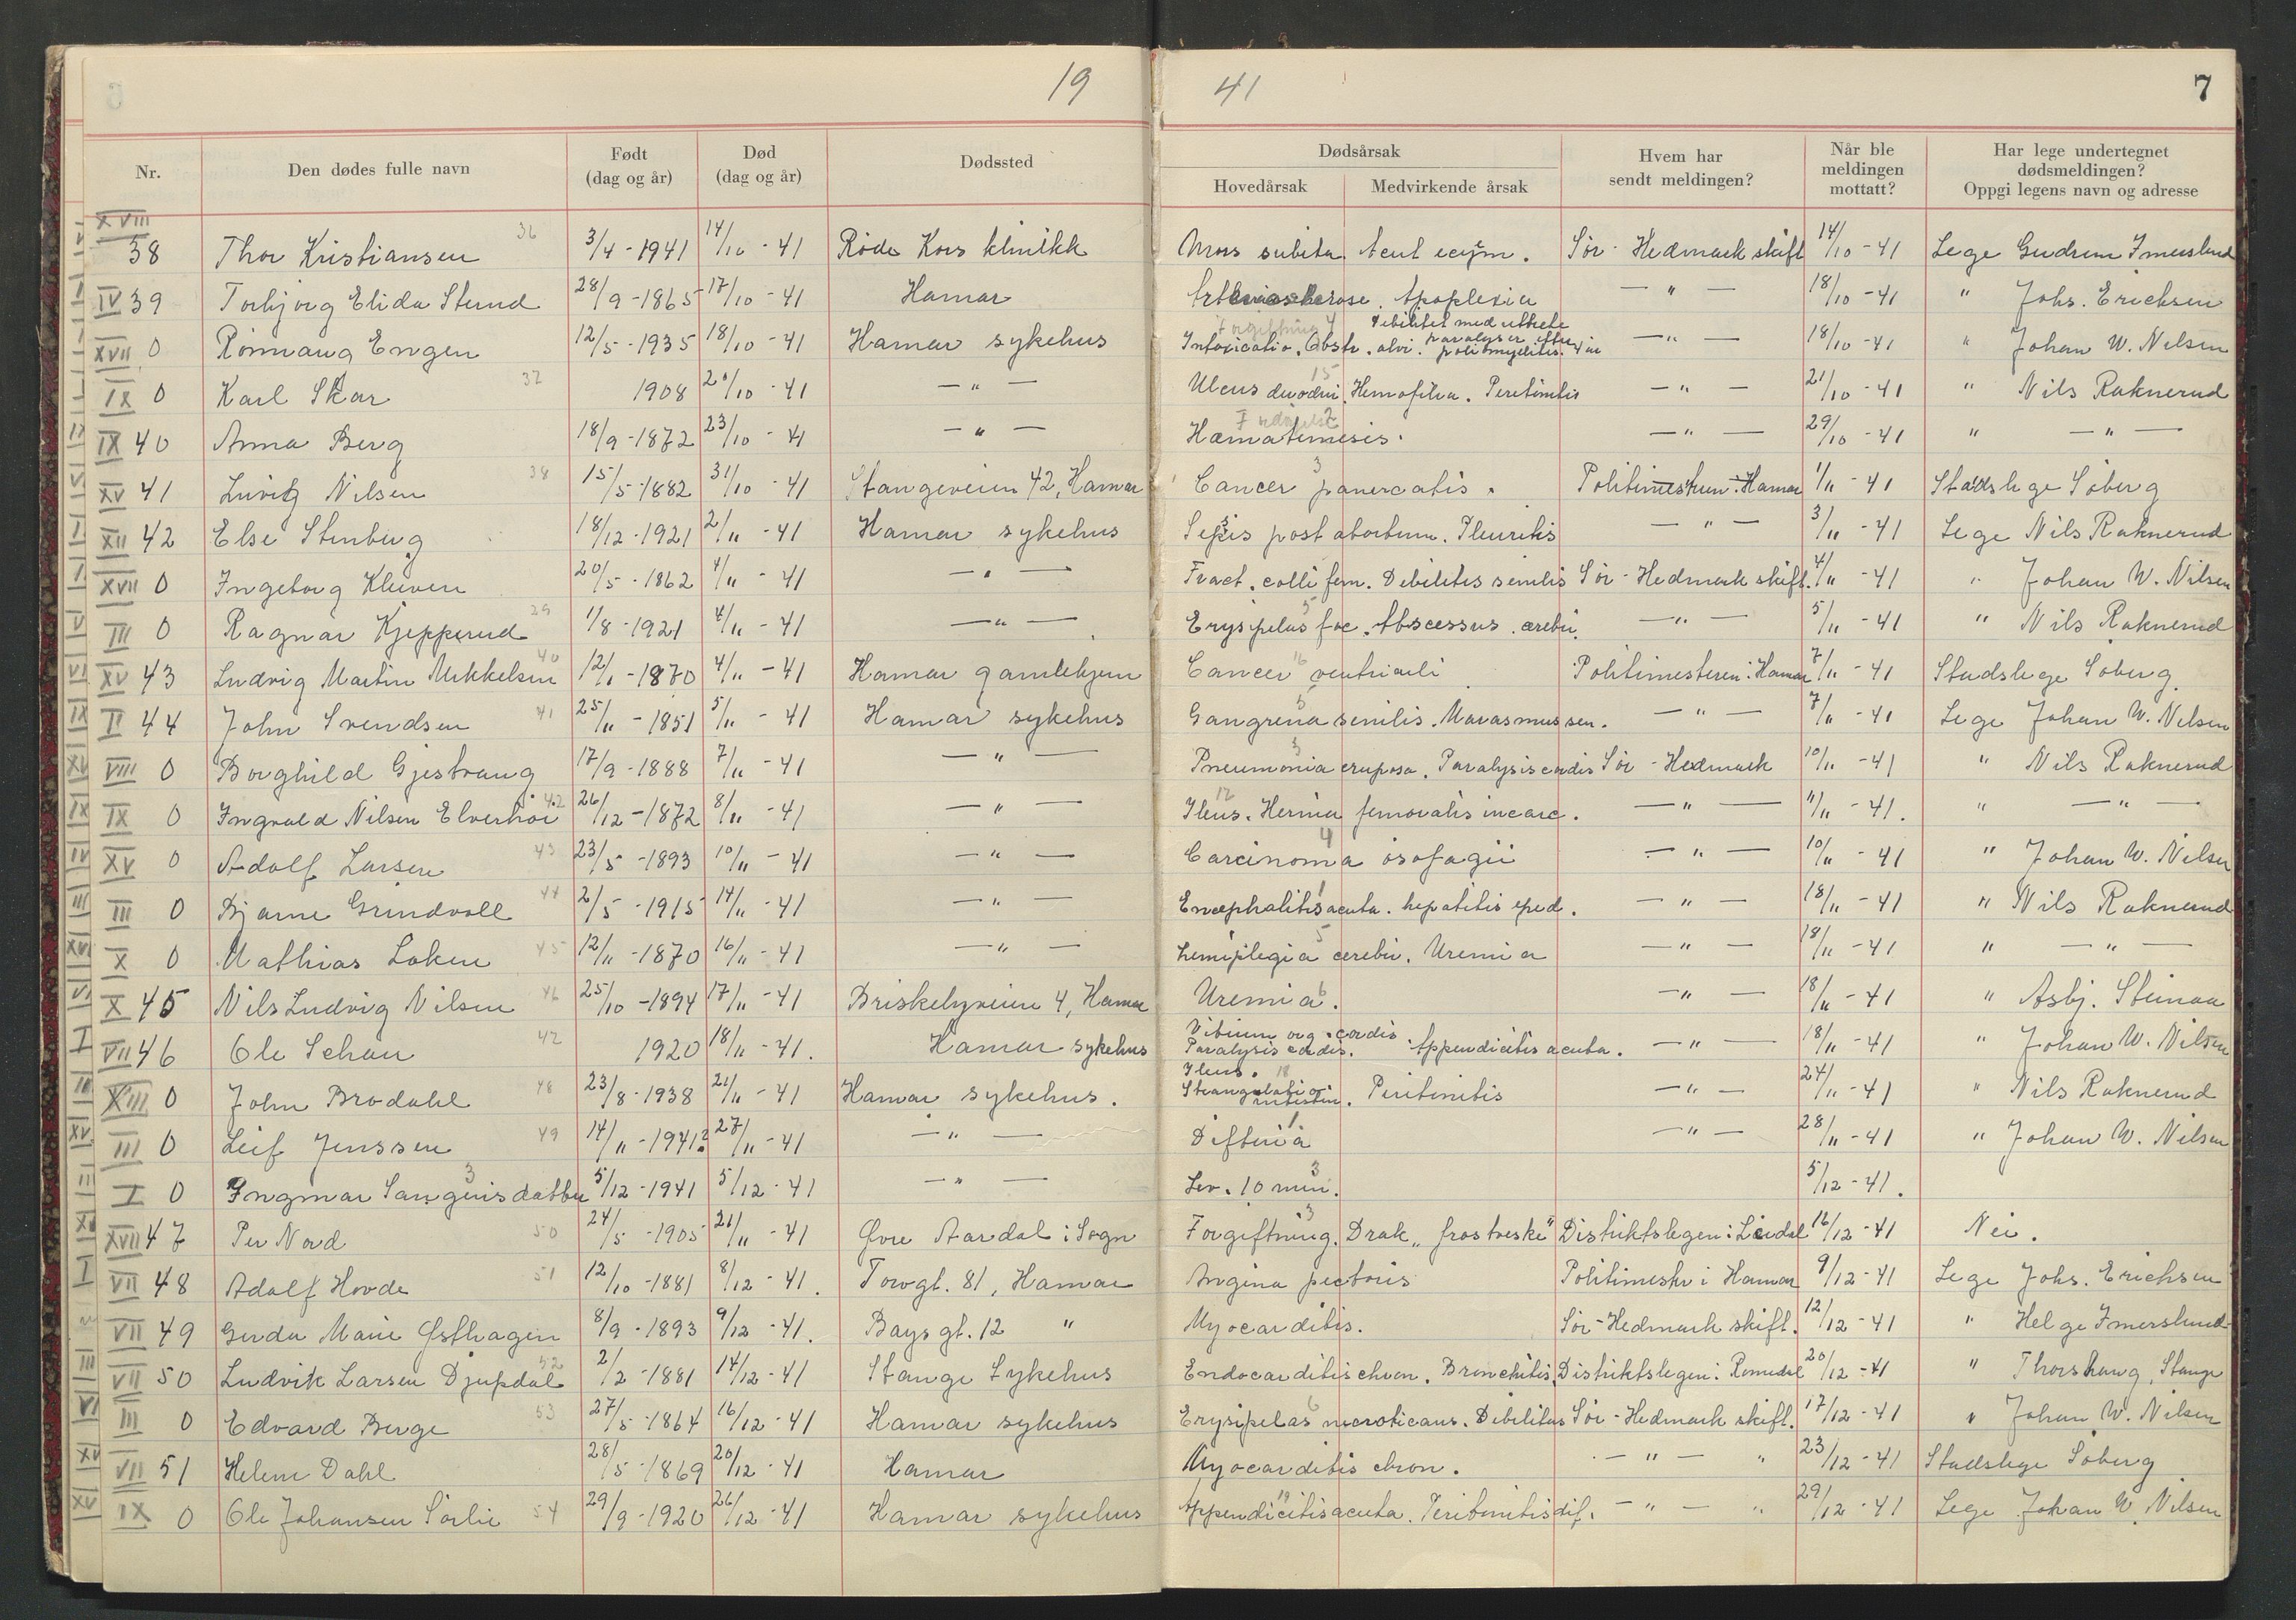 19 41 7
Nr. Den dødes fulle navn Født (dag og år) Død (dag og år) Dødssted Dødsårsak Hovedårsak Medvirkende årsak Hvem har sendt meldingen? Når ble meldingen mottatt? Har lege undertegnet dødsmeldingen? Oppgi legens navn og adresse
XVIII 38 Thor Kristiansen 36 3/4 - 1941 14/10 - 41 Röde Kors klinikk Mors subita. Acut eczm. Sör - Hedmark skift 14/10 - 41 Lege Gudrun Imerslund
IV 39 Torbjörg Elida Sterud 28/9 - 1865 17/10 - 41 Hamar Arteriosklerose. Apoplexia — " — 18/10 - 41 " Johs. Erichsen
XVII 0 Rönnaug Engen 12/5 - 1935 18/10 - 41 Hamar sykehus Intoxicatio. Obstr. alvi. Debilitet med uttalte paralyser efter poliomyelitis. — " — 18/10 - 41 " Johan W. Nilsen
IX 0 Karl Skar 37 1908 20/10 - 41 — " — Ulcus duodni. Hemofilia. Peritinitis 15 — " — 21/10 - 41 " Nils Raknerud
IX 40 Anna Berg 18/9 - 1872 23/10 - 41 — " — Hæmatemesis. — " — 29/10 - 41 " — " —
XV 41 Luvig Nilsen 38 15/5 - 1882 31/10 - 41 Stangeveien 42, Hamar Cancer pancreatis. 3 Politimestren i Hamar 1/11 - 41 Stadslege Söberg
XII 42 Else Stenberg 18/12 - 1921 2/11 - 41 Hamar sykehus Sepsis post abortum. Pleuritis — " — 3/11 - 41 Lege Nils Raknerud
XVII 0 Ingeborg Kleiven 20/5 - 1862 4/11 - 41 — " — Fract. colli fem. Debilitis senilis Sör - Hedmark skift. 4/11 - 41 " Johan W. Nilsen
III 0 Ragnar Kjepperud 39 1/8 - 1921 4/11 - 41 — " — Erysipelas fac. Abscessus. cerebri. 5 — " — 5/11 - 41 " Nils Raknerud
XV 43 Ludvig Martin Mikkelsen 40 12/1 - 1870 4/11 - 41 Hamar gamlehjem Cancer ventriculi 16 Politimesteren i Hamar 7/11 - 41 Stadslege Söberg
II 44 John Svendsen 41 25/11 - 1851 5/11 - 41 Hamar sykehus Gangrena senilis. Marasmus sen. 5 — " — 7/11 - 41 Lege Johan W. Nilsen
VIII 0 Borghild Gjestvang 17/9 - 1888 7/11 - 41 — " — Pneumonia cruposa. Paralysis cordis 3 Sör - Hedmark 10/11 - 41 " Nils Raknerud
IX 0 Ingvald Nilsen Elverhöi 42 26/12 - 1872 8/11 - 41 — " — Ileus. Hernia femoralis incarc. 12 — " — 11/11 - 41. " — " —
XV 0 Adolf Larsen 43 23/5 - 1893 10/11 - 41 — " — Carcinoma ösofagii 4 — " — 10/11 - 41 " Johan W. Nilsen
III 0 Bjarne Grindvoll 44 2/5 - 1915 14/11 - 41 — " — Encephalitis acuta. hepatitis epid. 1 — " — 18/11 - 41 " Nils Raknerud
X 0 Mathias Löken 45 12/11 - 1870 16/11 - 41 — " — hemiplegia cerebri. Uremia 5 — " — 18/11 - 41 " — " —
X 45 Nils Ludvig Nilsen 46 25/10 - 1894 17/11 - 41 Briskebyveien 4, Hamar Uremia. 6 — " — 18/11 - 41 " Asbj. Steinaa
VII 46 Ole Schau 47 1920 18/11 - 41. Hamar sykehus Vitium org. cordis Paralysis cordis. Appendicitis acuta. — " — 18/11 - 41 " Johan W. Nilsen
XIII 0 John Brodahl 48 23/8 - 1938 21/11 - 41 Hamar sykehus. Ileus. 18 Strangulatio intestin. Peritinitis — " — 24/11 - 41 " Nils Raknerud
III 0 Leif Jenssen 49 14/11 - 1941? 27/11 - 41 — " — Difteria 1 — " — 28/11 - 41 " Johan W. Nilsen
I 0 Ingmar Sanguisdatter 3 5/12 - 1941 5/12 - 41 — " — Lev. 10 min. 3 5/12 - 41.
XVII 47 Per Nord 50 24/5 - 1905 21/11 - 41 Øvre Aardal i Sogn Forgiftning. Drak „frostveske" 3 Distriktslegen i Lærdal 16/12 - 41 Nei.
VII 48 Adolf Hovde 51 12/10 - 1881 8/12 - 41. Torvgt. 81, Hamar Angina pectoris Politimestr i Hamar 9/12 - 41 Lege Johs. Erichsen
VII 49 Gerda Marie Østhagen 8/9 - 1893 9/12 - 41. Bays gt. 12 " Myocarditis. Sör - Hedmark skift. 12/12 - 41 " Helge Imerslund
VII 50 Ludvik Larsen Djupdal 52 2/2 - 1881 14/12 - 41 Stange Sykehus Endocarditis chron. Bronchitis. Distriktslegen i Romedal 20/12 - 41 " Thorshaug, Stange
III 0 Edvard Berge 53 27/5 - 1864 16/12 - 41 Hamar sykehus Erysipelas necroticans. Debilitas 6 Sör - Hedmark skift. 17/12 - 41 " Johan W. Nilsen
VII 51 Helene Dahl 28/5 - 1869 20/12 - 41 Hamar Myocarditis chron. — " — " 23/12 - 41 Stadslege Söberg
IX 0 Ole Johansen Sörlie 54 29/9 - 1920 26/12 - 41 Hamar sykehus Appendicitis acuta. Peritinitis dif. 19 — " — " 29/12 - 41 Lege Johan W. Nilsen